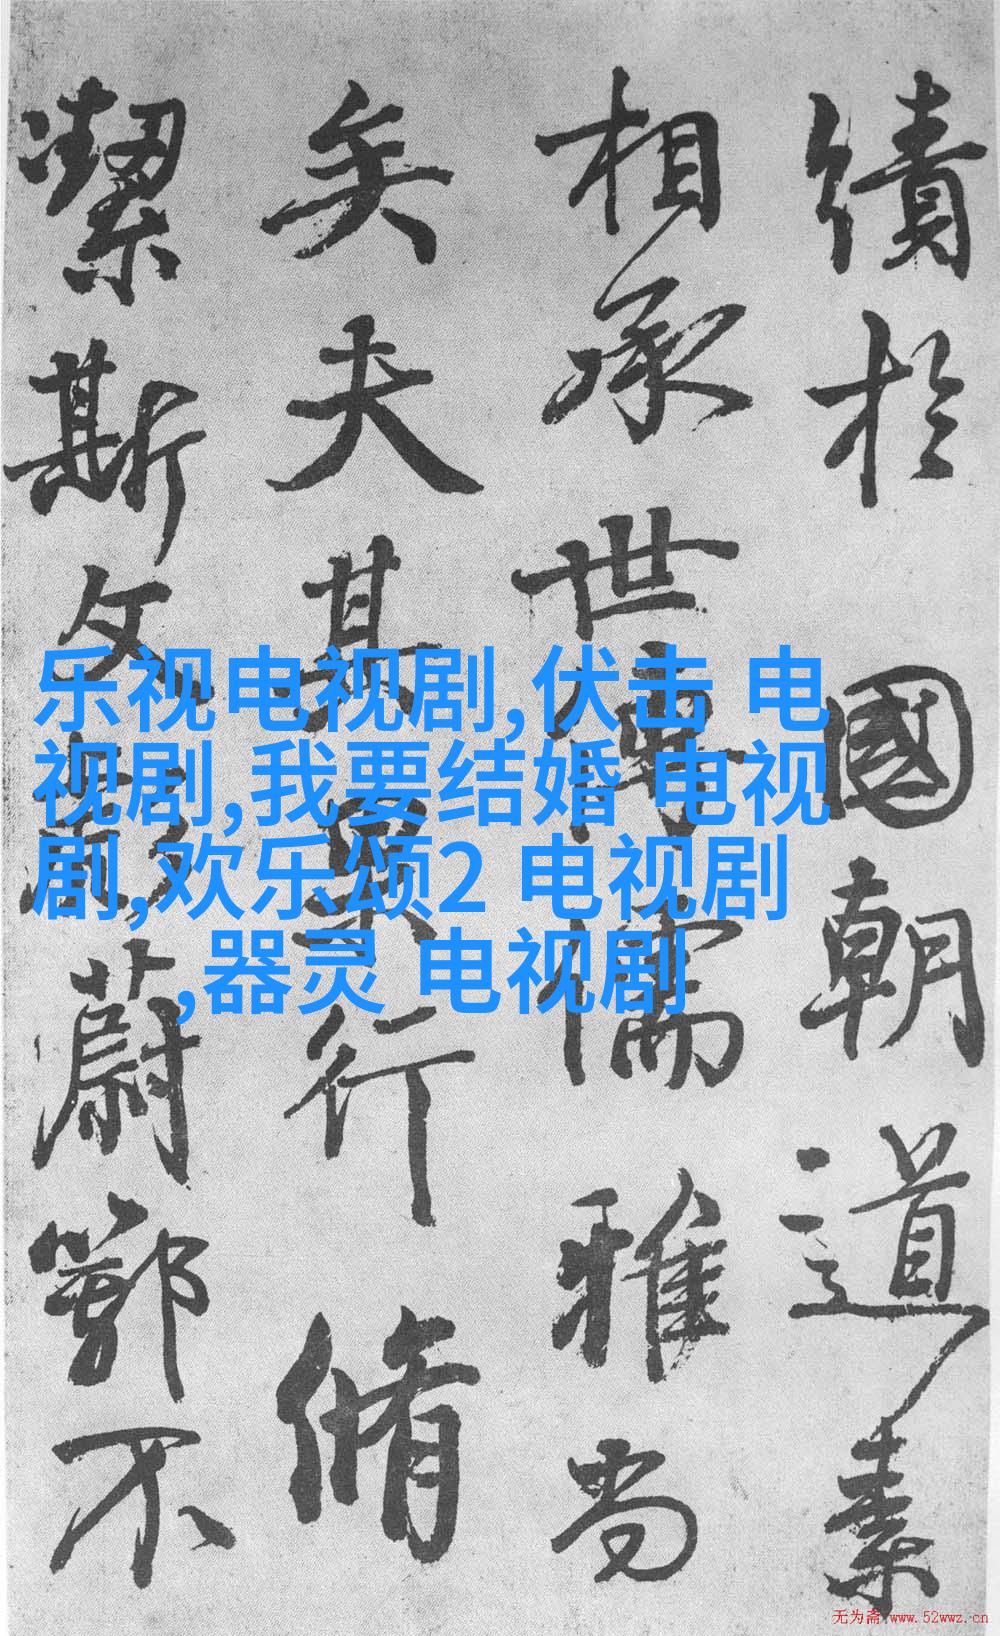 績於國朝道素
相承世傳儒雅尚
矣夫其果行脩
潔斯文彪蔚鄂不
乐视电视剧,伏击 电
视剧,我要结婚 电视
剧,欢乐颂2 电视剧
,器灵 电视剧
无为斋 www.52wwz.cn